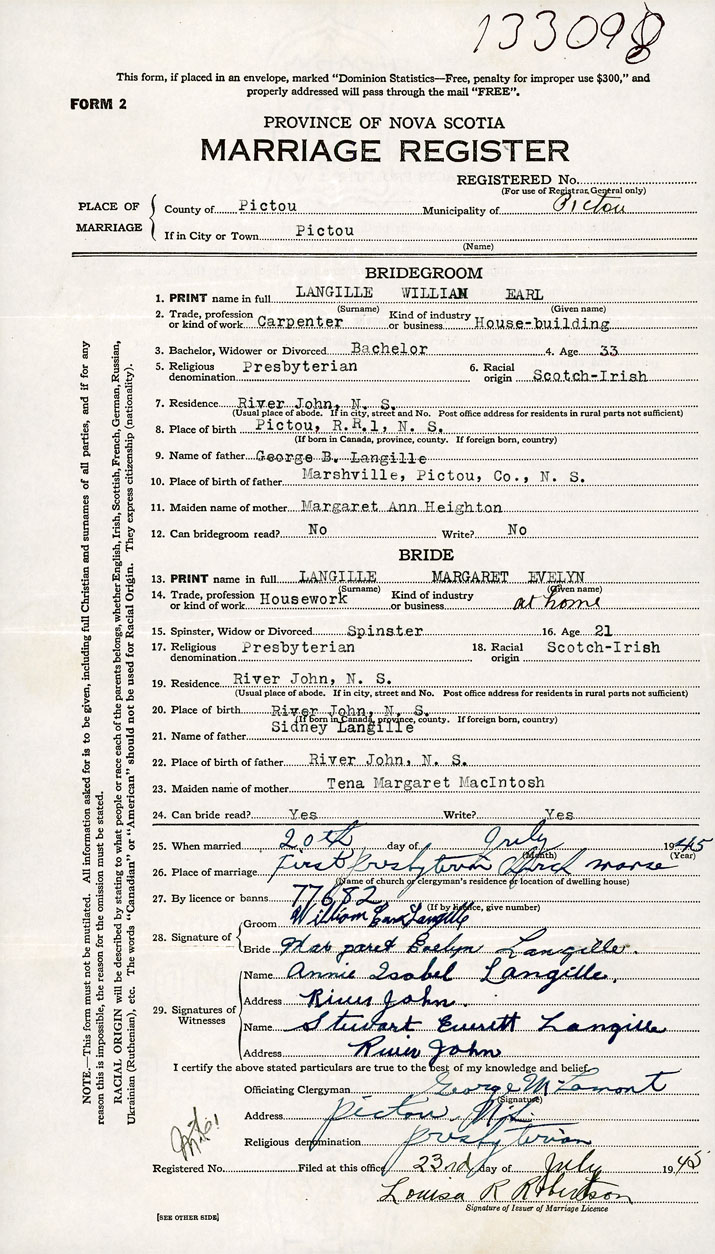 133098
This form, if placed in an envelope, marked "Dominion Statistics—Free, penalty for improper use $300," and
properly addressed will pass through the mail "FREE".
FORM 2
PROVINCE OF NOVA SCOTIA
MARRIAGE REGISTER
REGISTERED No.
(For use of Registrar General only)
PLACE OF MARRIAGE
County of Pictou Municipality of Pictou
If in City or Town Pictou
(Name)
BRIDEGROOM
1. PRINT name in full LANGILLE WILLIAM EARL
(Surname) (Given name)
2. Trade, profession or kind of work Carpenter Kind of industry or business House-building
3. Bachelor, Widower or Divorced Bachelor 4. Age 33
5. Religious denomination Presbyterian 6. Racial origin Scotch-Irish
7. Residence River John, N. S.
(Usual place of abode. If in city, street and No. Post office address for residents in rural parts not sufficient)
8. Place of birth Pictou, R.R.1, N. S.
(If born in Canada, province, county. If foreign born, country)
9. Name of father George B. Langille
10. Place of birth of father Marshville, Pictou, Co., N. S.
11. Maiden name of mother Margaret Ann Heighton
12. Can bridegroom read? No Write? No
BRIDE
13. PRINT name in full LANGILLE MARGARET EVELYN
(Surname) (Given name)
14. Trade, profession or kind of work Housework Kind of industry or business at home
15. Spinster, Widow or Divorced Spinster 16. Age 21
17. Religious denomination Presbyterian 18. Racial origin Scotch-Irish
19. Residence River John, N. S.
(Usual place of abode. If in city, street and No. Post office address for residents in rural parts not sufficient)
20. Place of birth River John, N. S.
(If born in Canada, province, county. If foreign born, country)
21. Name of father Sidney Langille
22. Place of birth of father River John, N. S.
23. Maiden name of mother Tena Margaret MacIntosh
24. Can bride read? Yes Write? Yes
25. When married 20th day of July 1945
(Month) (Year)
26. Place of marriage First Presbyterian Church manse
(Name of church or clergyman's residence or location of dwelling house)
27. By licence or banns 77682
(If by licence, give number)
28. Signature of
Groom William Earl Langille
Bride Margaret Evelyn Langille.
29. Signatures of Witnesses
Name Annie Isabel Langille.
Address River John.
Name Stewart Everett Langille
Address River John
I certify the above stated particulars are true to the best of my knowledge and belief.
Officiating Clergyman George M Lamont
(Signature)
Address Pictou, N.S.
Religious denomination Presbyterian
Registered No. Filed at this office 23rd day of July 1945
Louisa R Robertson
Signature of Issuer of Marriage Licence
[SEE OTHER SIDE]
NOTE.—This form must not be mutilated. All information asked for is to be given, including full Christian and surnames of all parties, and if for any
reason this is impossible, the reason for the omission must be stated.
RACIAL ORIGIN will be described by stating to what people or race each of the parents belongs, whether English, Irish, Scottish, French, German, Russian,
Ukrainian (Ruthenian), etc. The words "Canadian" or "American" should not be used for Racial Origin. They express citizenship (nationality).